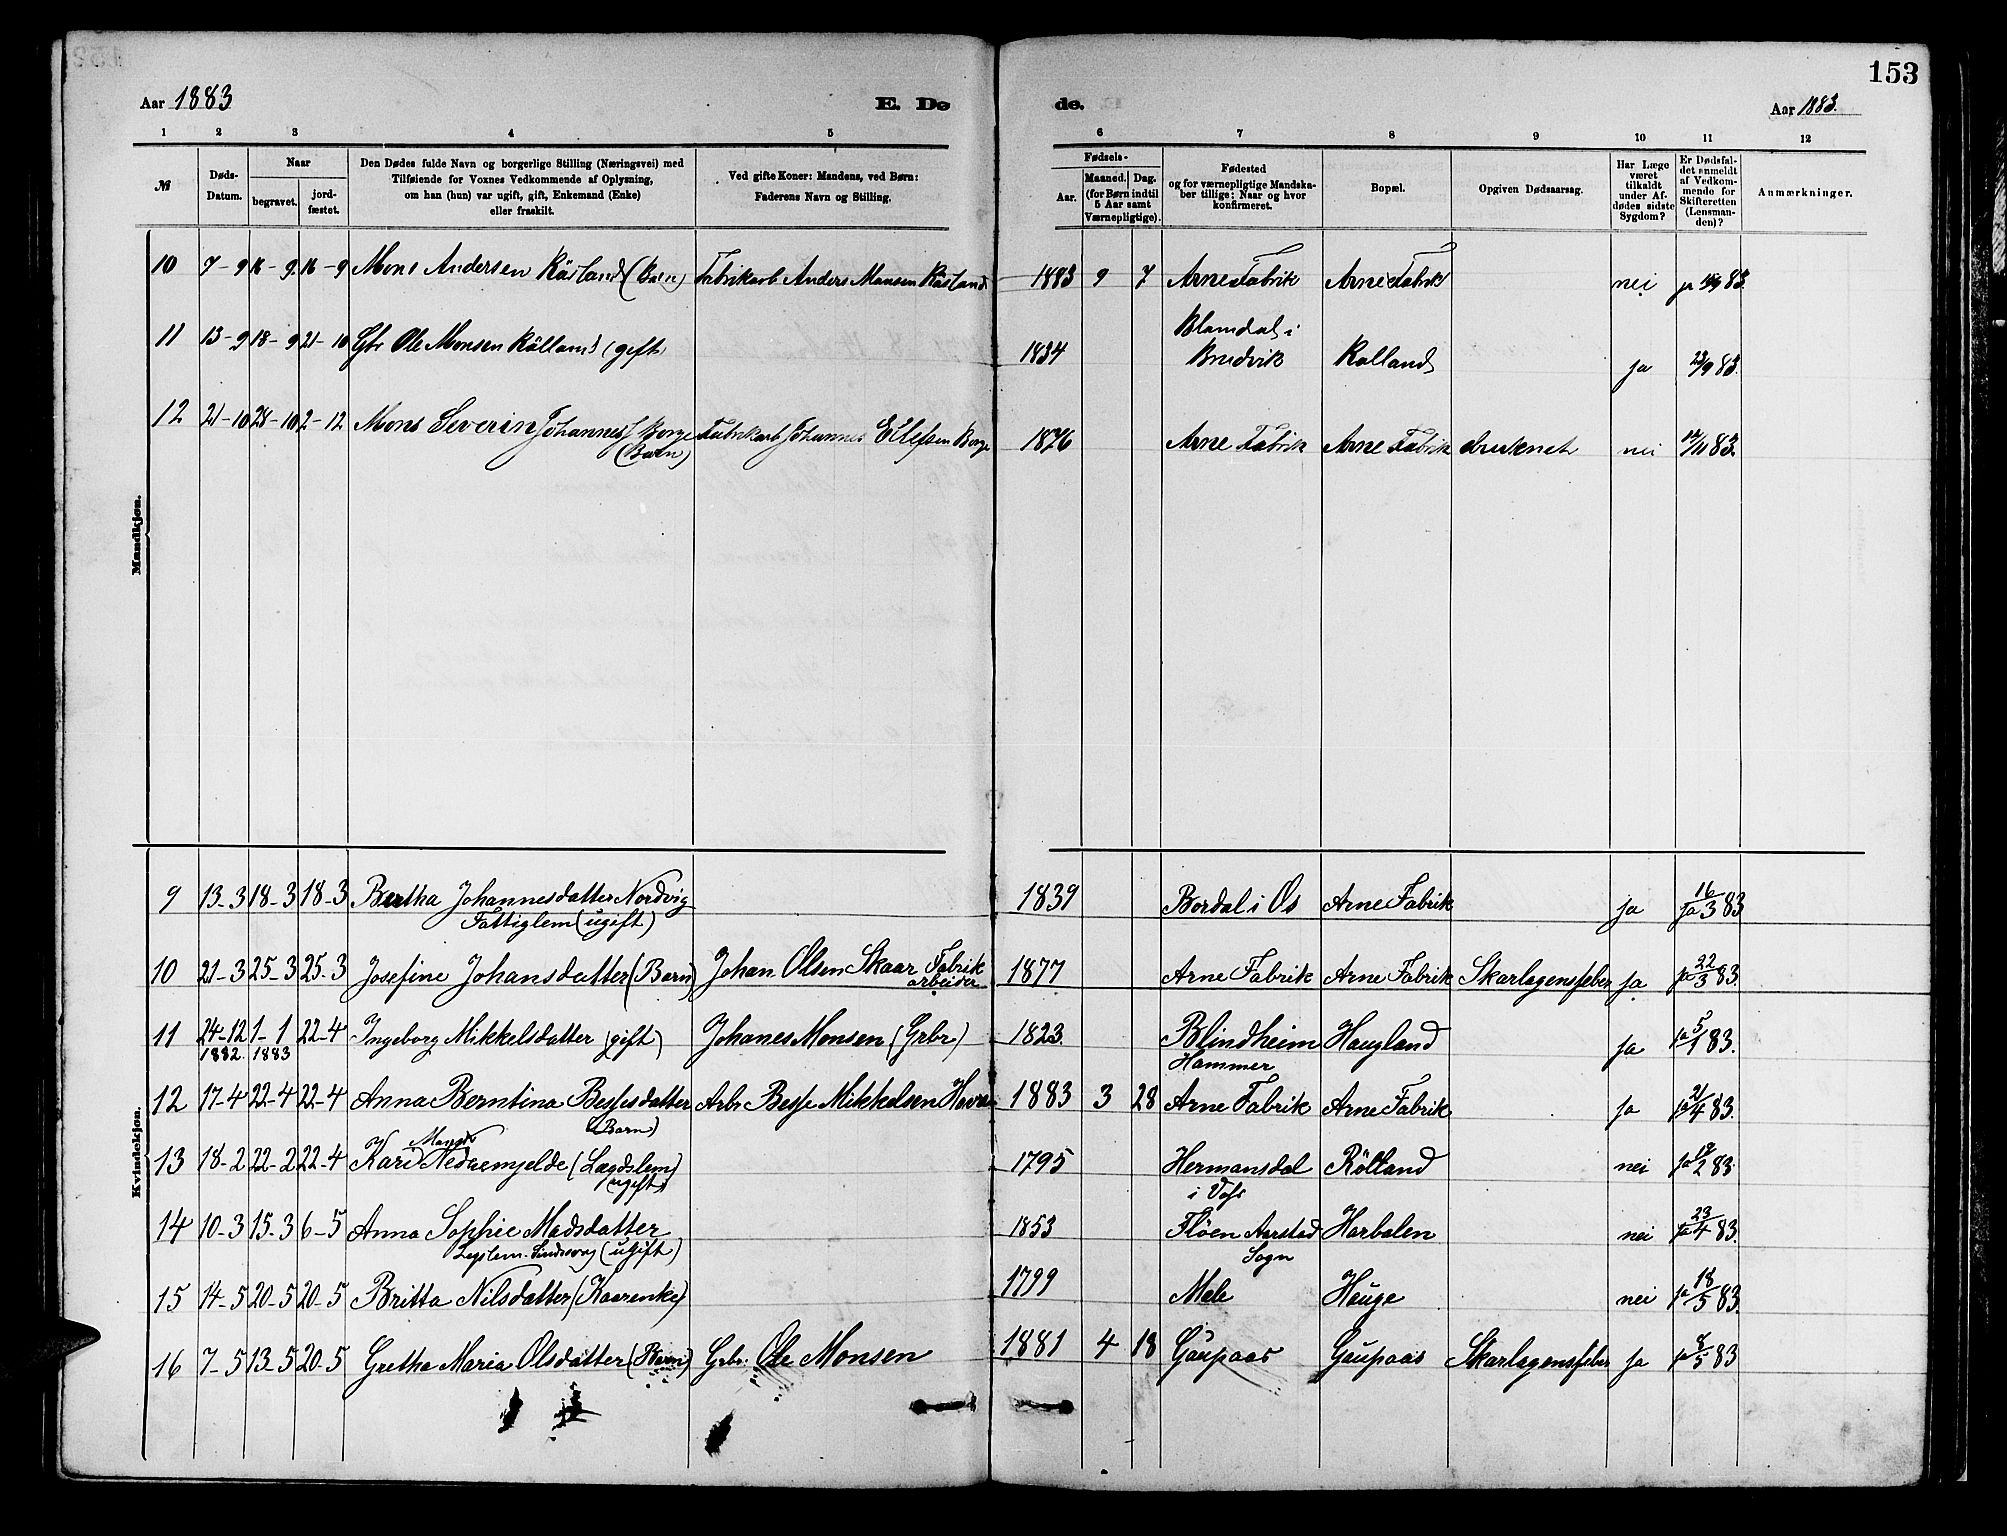 153
Aar 1883 E. Dø de. Aar 1883.
1 2 3 4 5 6 7 8 9 10 11 12
№
Døds-Datum.
Naar
begravet.
jord-fæstet.
Den Dødes fulde Navn og borgerlige Stilling (Næringsvei) med
Tilføiende for Voxnes Vedkommende af Oplysning,
om han (hun) var ugift, gift, Enkemand (Enke)
eller fraskilt.
Ved gifte Koner: Mandens, ved Børn:
Faderens Navn og Stilling.
Fødsels-
Aar.
Maaned. Dag.
(for Børn indtil
5 Aar samt
Værnepligtige).
Fødested
og for værnepligtige Mandska-
ber tillige: Naar og hvor
konfirmeret.
Bopæl.
Opgiven Dødsaarsag.
Har Læge
været
tilkaldt
under Af-
dødes sidste
Sygdom?
Er Dødsfal-
det anmeldt
af Vedkom-
mende for
Skifteretten
(Lensman-
den)?
Anmærkninger.
Mandkjøn.
10 7-9 16-9 16-9 Mons Andersen (Barn) Fabrikarb Anders Monsen 1883 9 7 Arne Fabrik Arne Fabrik nei ja 83.
11 13-9 18-9 21-10 Gbr Ole Monsen Rölland (gift) 1834 Blamdal i
Bruvik Rolland ja 23/9 83.
12 21-10 28-10 2-12 Mons Severin Johannes Borge Fabrikarb Johannes Ellefsen Borge 1876 Arne Fabrik Arne Fabrik druknet nei 12/11 83.
(Barn)
Kvindekjøn.
9 13-3 18-3 18-3 Bertha Johannesdatter Nordvig 1839 Bordal i Os Arne Fabrik ja ja 16/3 83
Fattiglem (ugift)
10 21-3 25-3 25-3 Josefine Johansdatter (Barn) Johan Olsen Skaar Fabrik 1877 Arne Fabrik Arne Fabrik Skarlagensfeber ja ja 22/3 83.
arbeider
11 24-12 1-1 22-4 Ingeborg Mikkelsdatter (gift) Johanes Monsen (Grbr) 1823. Blindheim Haugland ja ja 5/1 83.
1882. 1883 Hammer
12 17-4 22-4 22-4 Anna Berntina Bessesdatter Arbr Besse Mikkelsen 1883 3 28 Arne Fabrik Arne Fabrik ja ja 21/4 83.
(Barn)
13 18-2 22-2 22-4 Kari Mangdr Nedremjelde (Lægdslem) 1795 Hermansdal Rölland nei ja 2 83.
ugift) i Vofs
14 10-3 15-3 6-5 Anna Sophie Madsdatter 1853 Flöen Aarstad Harbalen nei ja 23/4 83.
(ugift) Sogn
15 14-5 20-5 20-5 Britta Nilsdatter (Kaarenke) 1799 Mele Hauge nei ja 18/5 83.
16 7-5 13-5 20-5 Gretha Maria Olsdatter (Barn) Grbr. Ole Monsen 1881 4 18 Gaupaas Gaupaas Skarlagensfeber ja ja 8/5 83